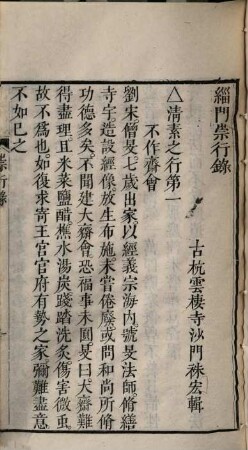 緇門崇行錄
古杭雲棲寺沙門袾宏輯
△清素之行第一
不作齋會
劉宋僧旻七歲出家以經義宗海內號旻法師修繕
寺宇造設經像放生布施未嘗倦廢或問和尚所修
功德多矣不聞建大齋會恐福事未圓旻曰大齋難
得盡理且米菜鹽醋樵水湯炭踐踏洗炙傷害微虫
故不爲也如復求寄王官官府有勢之家彌難盡意
不如已之
崇行錄